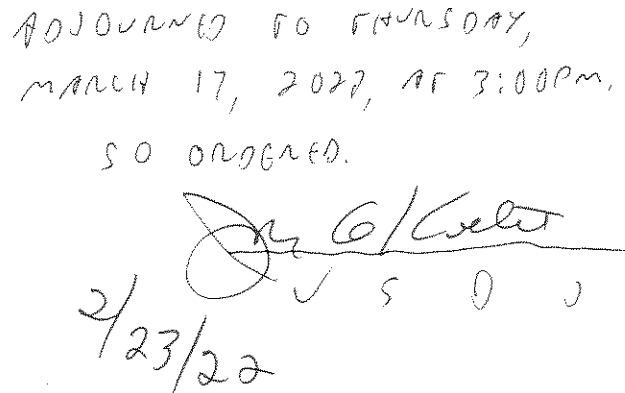 ADJOURNED TO THURSDAY,
MARCH 17, 2022, AT 3:00PM.
SO ORDERED.
John G. Koeltl
USDJ
2/23/22